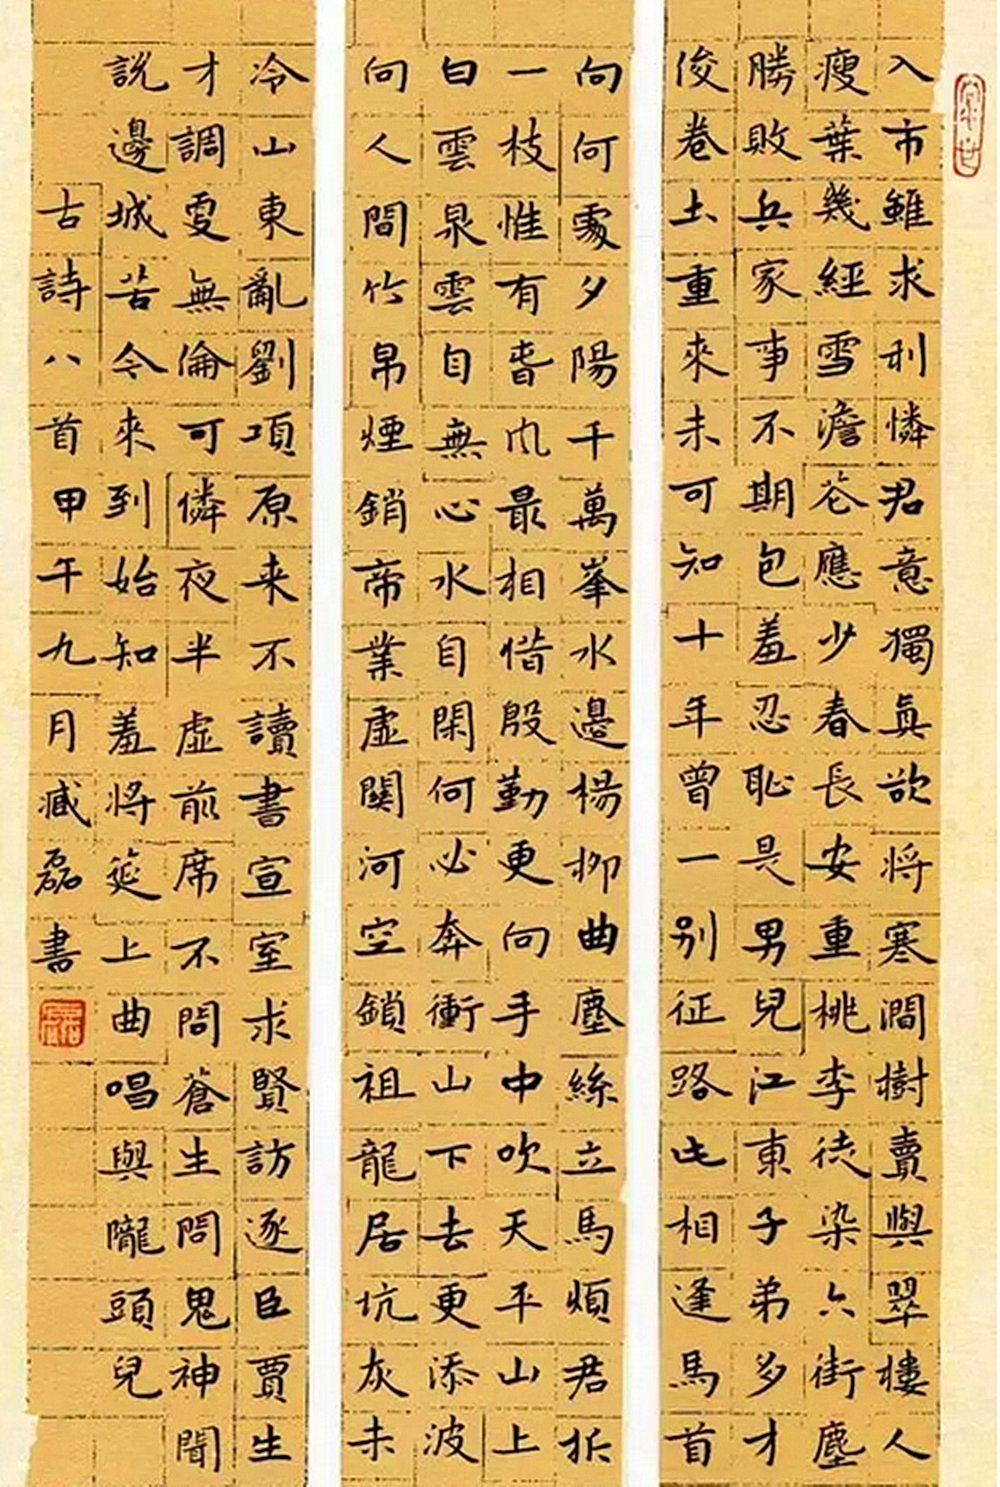 入市雖求利憐君意獨真欲将寒澗樹賣與翠樓人
瘦葉幾經雪澹花應少春長安重桃李徒染六街塵
勝敗兵家事不期包羞忍恥是男兒江東子弟多才
俊卷土重來未可知十年曾一别征路此相逢馬首
向何處夕陽千萬峯水邊楊柳曲塵絲立馬煩君折
一枝惟有春風最相惜殷勤更向手中吹天平山上
白雲泉雲自無心水自閑何必奔衝山下去更添波
向人間竹帛煙銷帝業虛關河空鎖祖龍居坑灰未
冷山東亂劉項原来不讀書宣室求賢訪逐臣賈生
才調更無倫可憐夜半虛前席不問蒼生問鬼神聞
說邊城苦令來到始知羞将筵上曲唱與隴頭兒
古詩八首甲午九月臧磊書